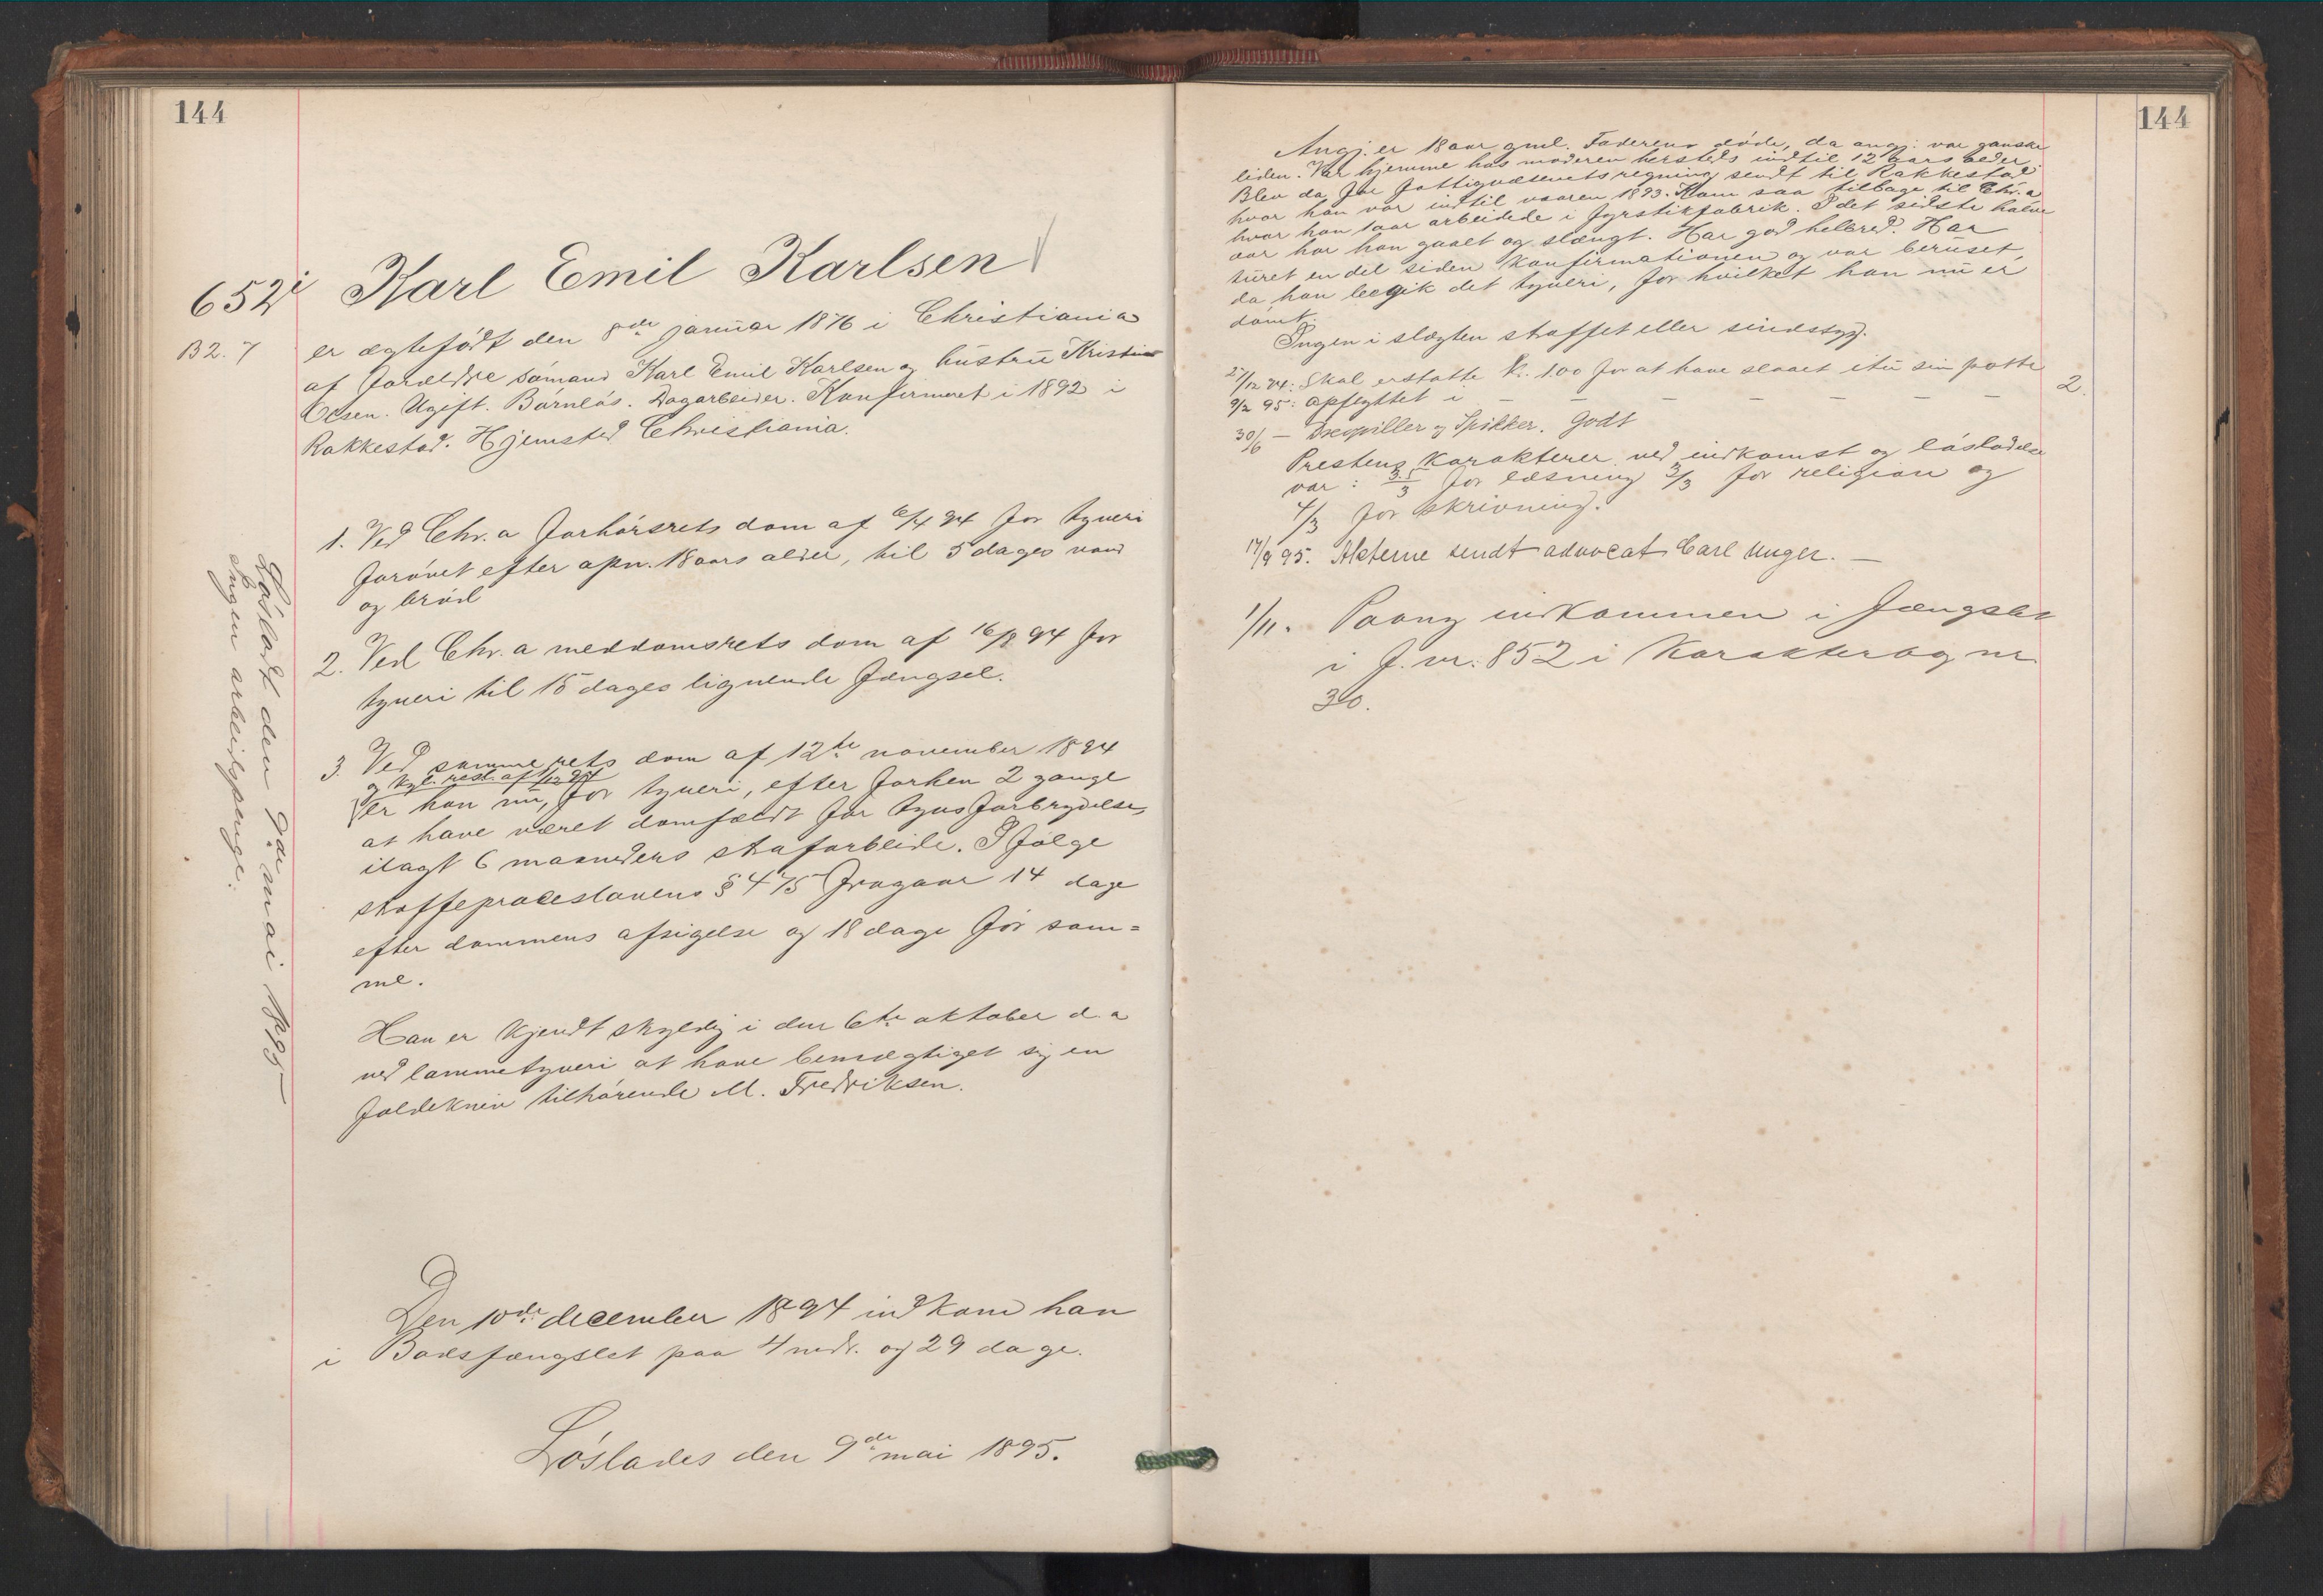 144
652i Karl Emil Karlsen
B2. 7
er ægtefødt den 8de januar 1876 i Christiania
af forældre sømand Karl Emil Karlsen og hustru Kristine
Olsen. Ugift. Barnløs. Dagarbeider. Konfirmeret i 1892 i
Rakkestad. Hjemsted Christiania.
1. Ved Chr.a forhørsrets dom af 6/4 94 for tyveri
forøvet efter opn. 18 aars alder, til 5 dages vand
og brød
2. Ved Chr.a meddomsrets dom af 16/8 94 for
tyveri til 15 dages lignende fængsel.
3. Ved samme rets dom af 12te november 1894
og kgl. resl. af 1/12 94
er han nu, for tyveri, efter forhen 2 gange
at have været domfældt for tyvsforbrydelse,
ilagt 6 maaneders strafarbeide. Ifølge
straffeproceslovens § 475 fragaar 14 dage
efter dommens afsigelse og 18 dage før sam=
me.
Han er kjendt skyldig i den 6te oktober d.a
ved lommetyveri at have bemægtiget sig en
foldekniv tilhørende M. Fredriksen.
Den 10de december 1894 indkom han
i Bodsfængslet paa 4 mdr. og 29 dage.
Løslades den 9de mai 1895.
Løsladt den 9de mai 1895
Ingen arbeidspenge.
144
Angj. er 18 aar gml. Faderen døde, da angj. var ganske
liden. Var hjemme hos moderen hersteds indtil 12 aars alder.
Blev da for fattigvæsenets regning sendt til Rakkestad
hvor han var indtil vaaren 1893. Kom saa tilbage til Chr.a
hvor han 1 aar arbeidede i fyrstikfabrik. I det sidste halve
aar har han gaaet og slængt. Har god helbred. Har
turet en del siden konfirmationen og var beruset,
da han begik det tyveri, for hvilket han nu er
dømt.
Ingen i slægten straffet eller sindssyg.
27/12 94: Skal erstatte Kr. 1.00 for at have slaaet itu sin potte
9/2 95: opflyttet i — — — — — — 2.
30/6 — Godt
Prestens karakterer ved indkomst og løsladelse
var: 3.5/3 for læsning 3/3 for religion og
4/3 for skrivning.
17/9 95. Akterne sendt advocat Carl Unger. —
1/11. Paany indkommen i fængslet
i F. nr. 852 i Karakterbog nr.
30.